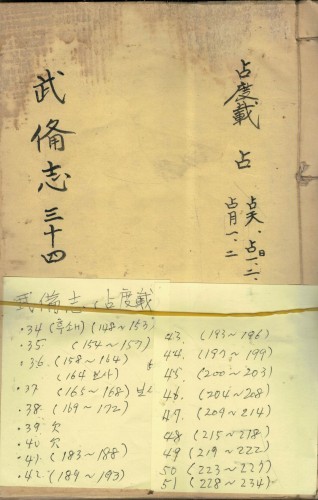 占度載 占
占天、占日一、二、
占月一、二
武備志 三十四
武備志, 占度載
·34 (후쇄) (148~153)
·35 (154~157)
·36 (158~164)
(164 보사)
·37 (165~168)
·38 (169~172)
·39 欠
·40 欠
·41 (183~188)
·42 (189~193)
43. (193~196)
44. (197~199)
45 (200~203)
46. (204~208)
47. (209~214)
48 (215~218)
49 (219~222)
50 (223~227)
51 (228~234)